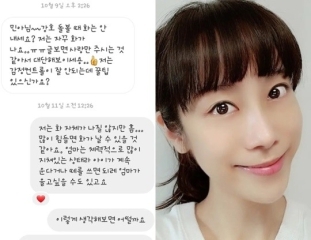 10월 9일 오후 2:26
민아님~~강호 돌볼 때 화는 안
내세요? 저는 자꾸 화가
나요..ㅠㅠ글보면 사랑만 주시는 것
같아서 대단해보이세용..👍저는
감정컨트롤이 잘 안되는데 꿀팁
있으신가요?
10월 11일 오전 12:36
저는 화 자체가 나질 않지만 흠...
많이 힘들면 화가 날 수 있을 것
같아요. 엄마는 체력적으로 많이
지쳐있는 상태라 아이가 계속
운다거나 떼를 쓰면 되려 엄마가
울고싶을 수도 있고요
이렇게 생각해보면 어떨까요